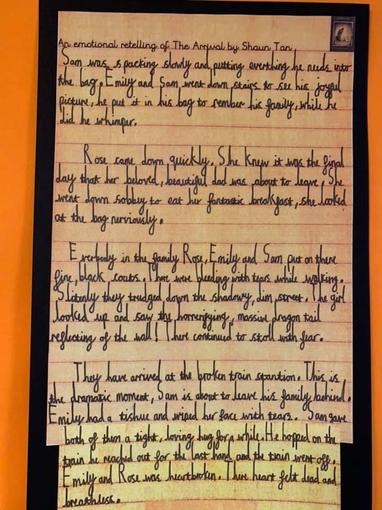 An emotional retelling of The Arrival by Shaun Tan
Sam was spacking slowly and putting everthing he needs into
the bag. Emily and Sam went down stairs to see his joyful
picture, he put it in his bag to rember his family, while he
did he whimper.
Rose came down quickly. She knew it was the final
day that her beloved, beautiful dad was about to leave. She
went down sobbly to eat her fantastic breakfast, she looked
at the bag nerviously.
Everbody in the family Rose, Emily and Sam put on there
fine, black, coats. There were bleeding with tears while walking.
Silently they trudged down the shadowy, dim street. The girl
looked up and saw the horrenifying, massive dragon tail
reflecting of the wall! There continued to stroll with fear.
They have arrived at the broken train stantion. This is
the dramatic moment, Sam is about to leave his family behind.
Emily had a tishue and wiped her face with tears. Sam gave
both of them a tight, loving hug for a while. He hopped on the
train he reached out for the last hand and the train went off.
Emily and Rose was heartbroken. There heart felt dead and
breathless.